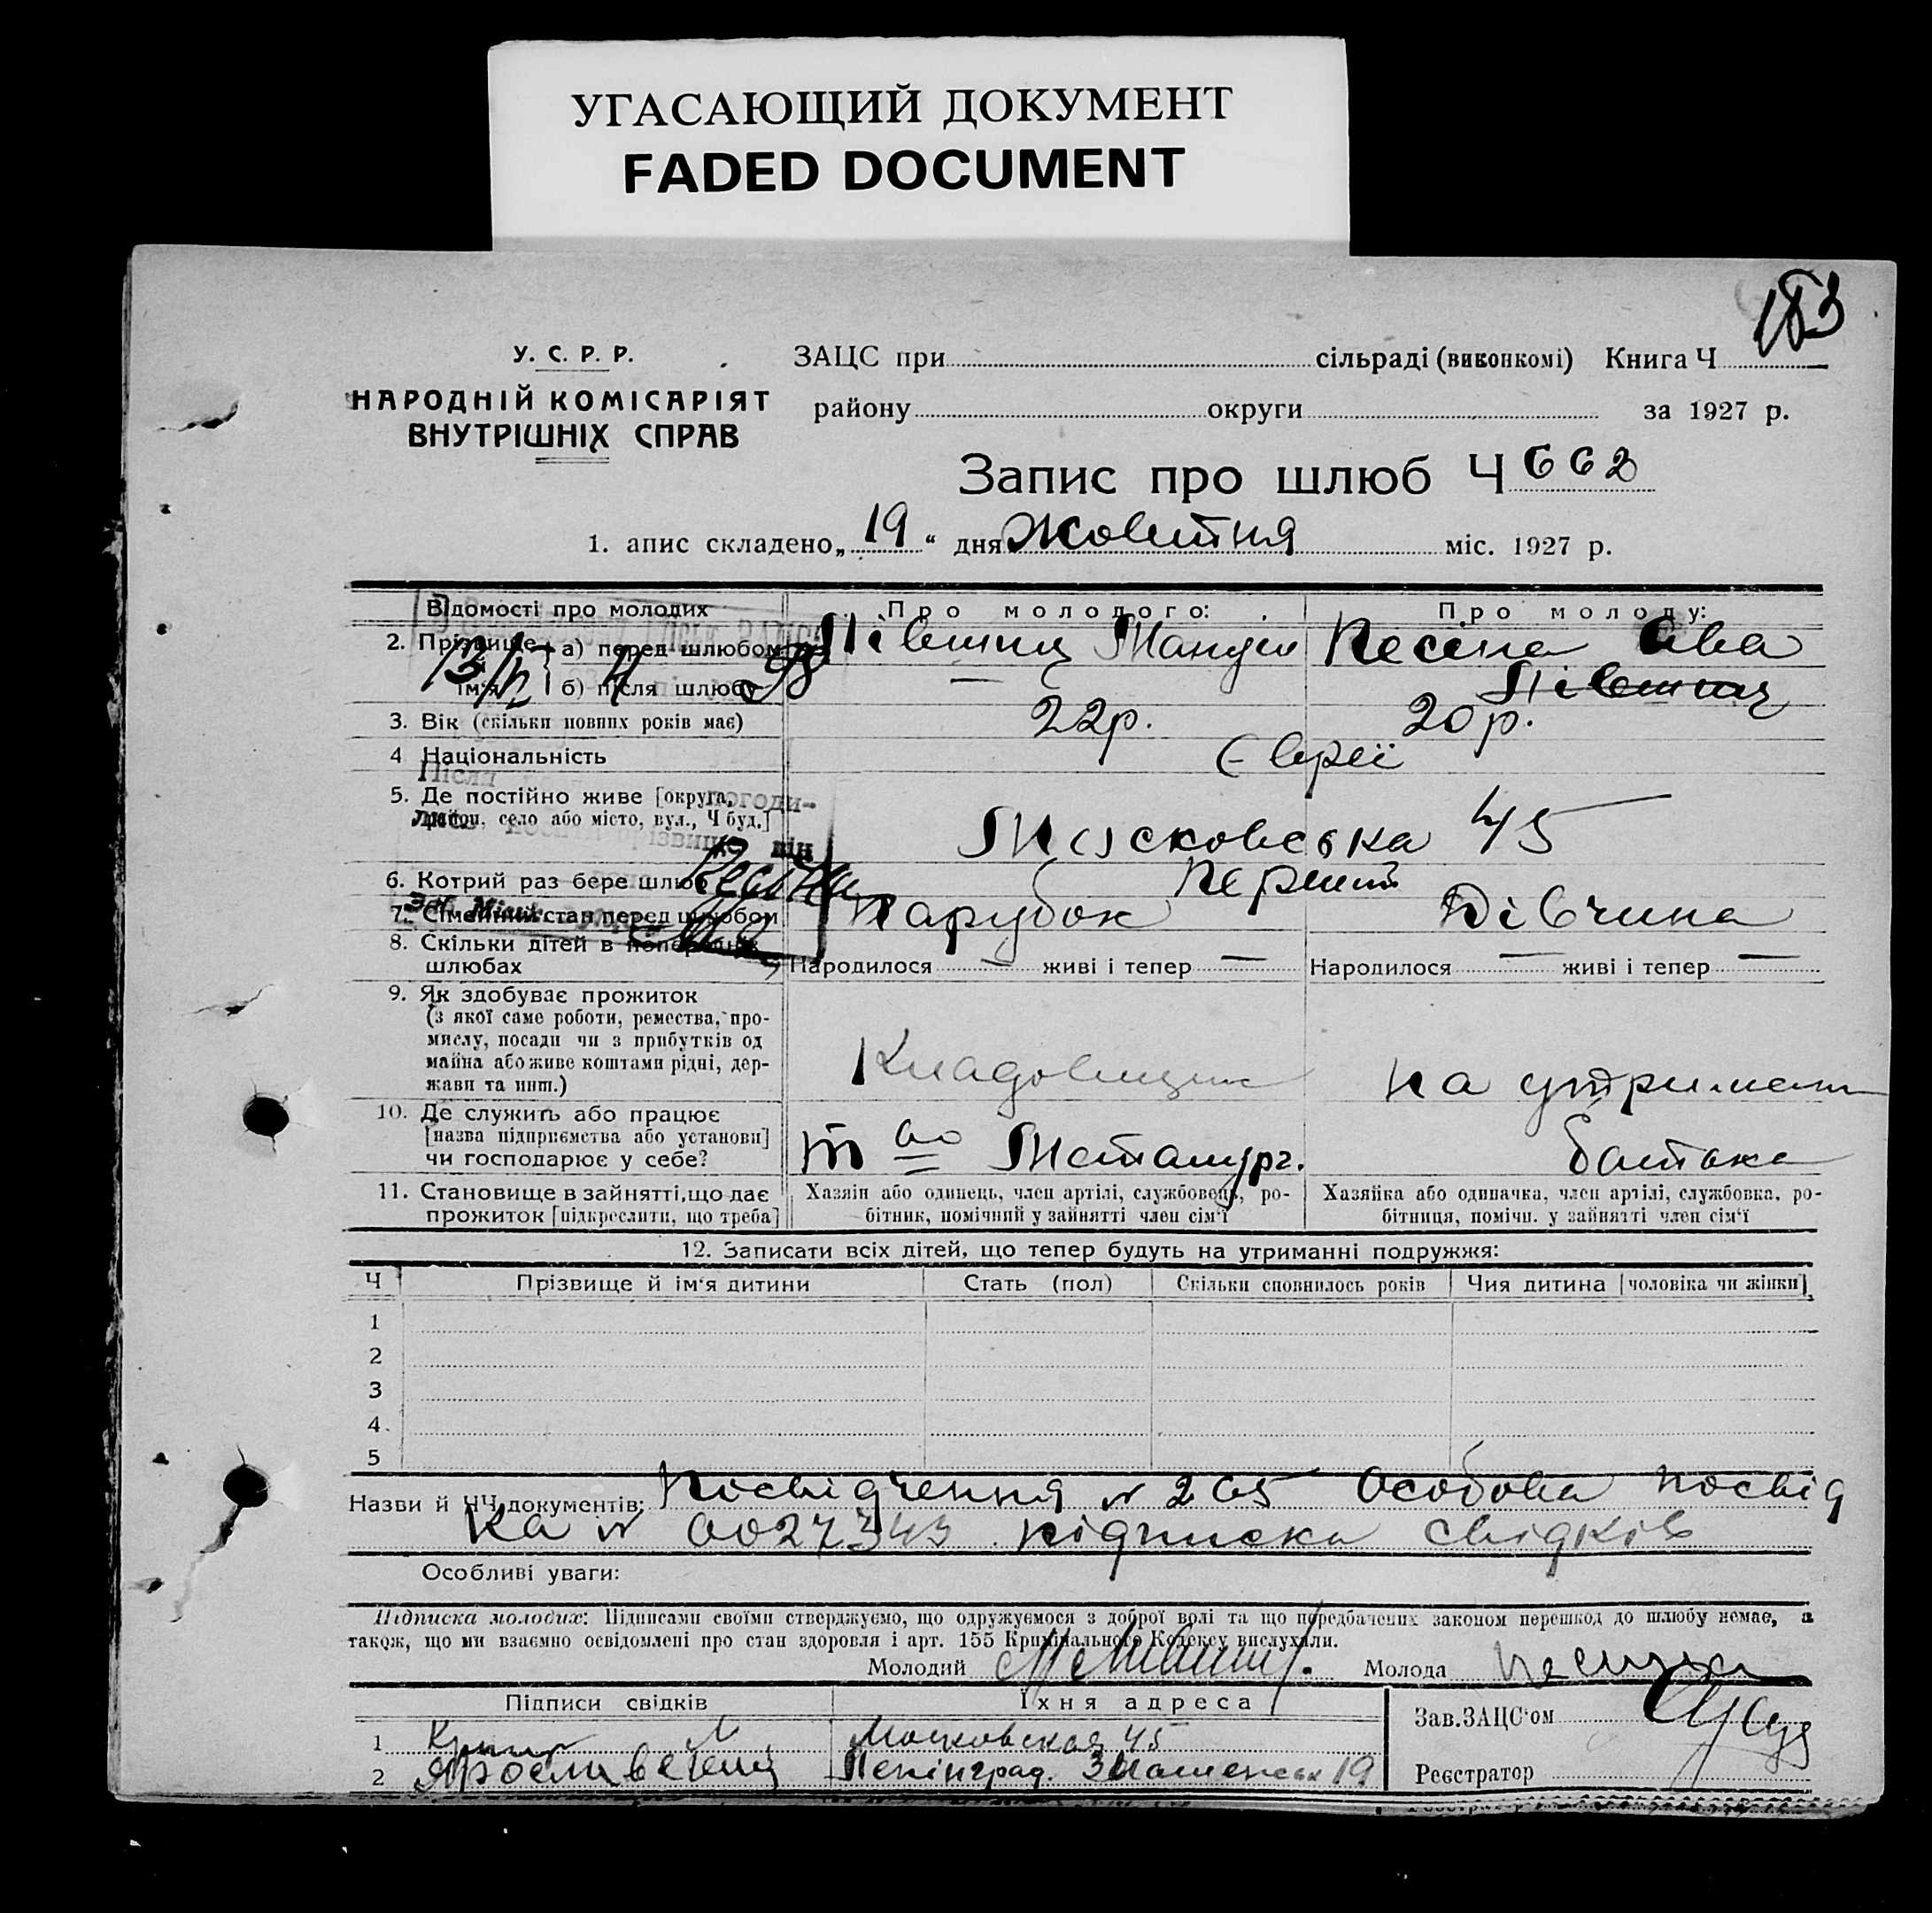 УГАСАЮЩИЙ ДОКУМЕНТ
FADED DOCUMENT
183
У. С. Р. Р.
НАРОДНІЙ КОМІСАРІЯТ
ВНУТРІШНІХ СПРАВ
ЗАЦС при сільраді (виконкомі) Книга Ч
району округи за 1927 р.
Запис про шлюб Ч 662
1. апис складено „19“ дня Жовтня міс. 1927 р.
Відомості про молодих Про молодого: Про молоду:
2. Прізвище й ім'я а) перед шлюбом Півшиц Песіна
б) після шлюбу — Півшиц
3. Вік (скільки повних років має) 22р. 20р.
4 Національність Євреї
5. Де постійно живе [округа, район, село або місто, вул., Ч буд.] Московська 45
Після погоди-
прізвище він
6. Котрий раз бере шлюб Перший
7. Сімейний стан перед шлюбом Парубок Дівчина
8. Скільки дітей в попередніх
шлюбах Народилося — живі і тепер — Народилося — живі і тепер —
9. Як здобуває прожиток
(з якої саме роботи, ремества, про-
мислу, посади чи з прибутків од
майна або живе коштами рідні, дер-
жави та инш.) Кладовщик на утриманні
10. Де служить або працює
[назва підприємства або установи]
чи господарює у себе? т во Металург. батька
11. Становище в зайнятті, що дає Хазяін або одинець, член артілі, службовець, ро- Хазяйка або одиначка, член артілі, службовка, ро-
прожиток [підкреслити, що треба] бітник, помічний у зайнятті член сім'ї бітниця, помічн. у зайнятті член сім'ї
12. Записати всіх дітей, що тепер будуть на утриманні подружжя:
Ч Прізвище й ім'я дитини Стать (пол) Скільки сповнилось років Чия дитина [чоловіка чи жінки]
1
2
3
4
5
Назви й ЧЧ документів: Посвідчення № 265 Особова посвід
ка № 0027343 підписка свідків
Особливі уваги:
Підписка молодих: Підписами своїми стверджуємо, що одружуємося з доброї волі та що передбачених законом перешкод до шлюбу немає, а
також, що ми взаємно освідомлені про стан здоровля і арт. 155 Кримінального Кодексу вислухали.
Молодий Молода
Підписи свідків Їхня адреса Зав. ЗАЦС'ом
1 Московская 45
2 Ленінград. 19 Реєстратор